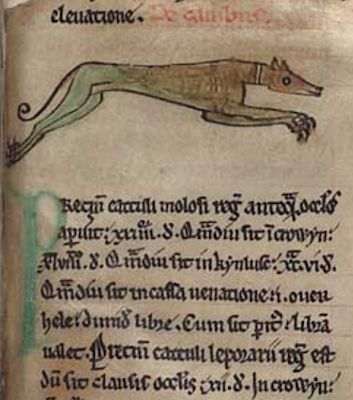 eleuatione. De canibus.
Preciū catuli molosi reḡ anteq̄ oc̄los
apiat: xxiiii. d. Qamdiu sit ī crowyn:
xlviii. d. Qamdiu sit in kynluse: xc.vi.d.
Qamdiu sit in cassa uenatione .i. ouer
hele: dimid libre. Cum sit perit: librā
ualet. Precium catuli leporarii reḡ est
dū sit clausis oc̄lis xii. d. In crowyn: